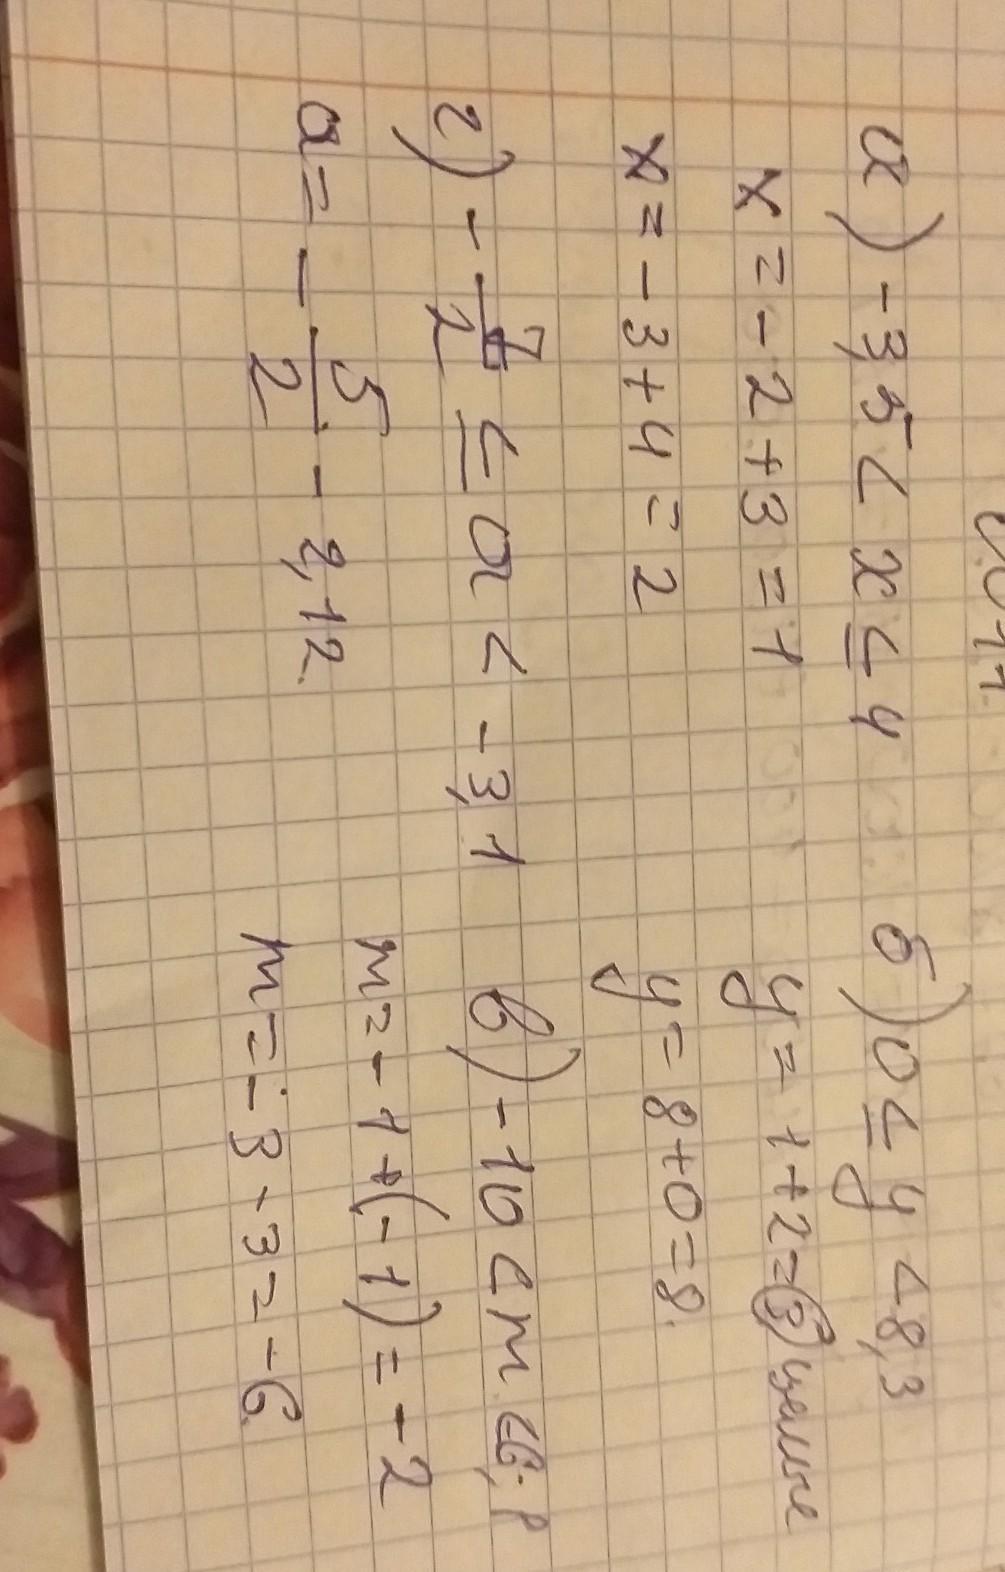 а) -3,5 < x ≤ 4
x = -2 + 3 = 1
x = -3 + 4 = 2
б) 0 ≤ y < 8,3
y = 1 + 2 = 3 целые
y = 8 + 0 = 8.
г) - 7/2 ≤ a < -3,1
a = - 5/2 - 2,12.
в) -10 < m <
m = -1 + (-1) = -2
m = -3 - 3 = -6.